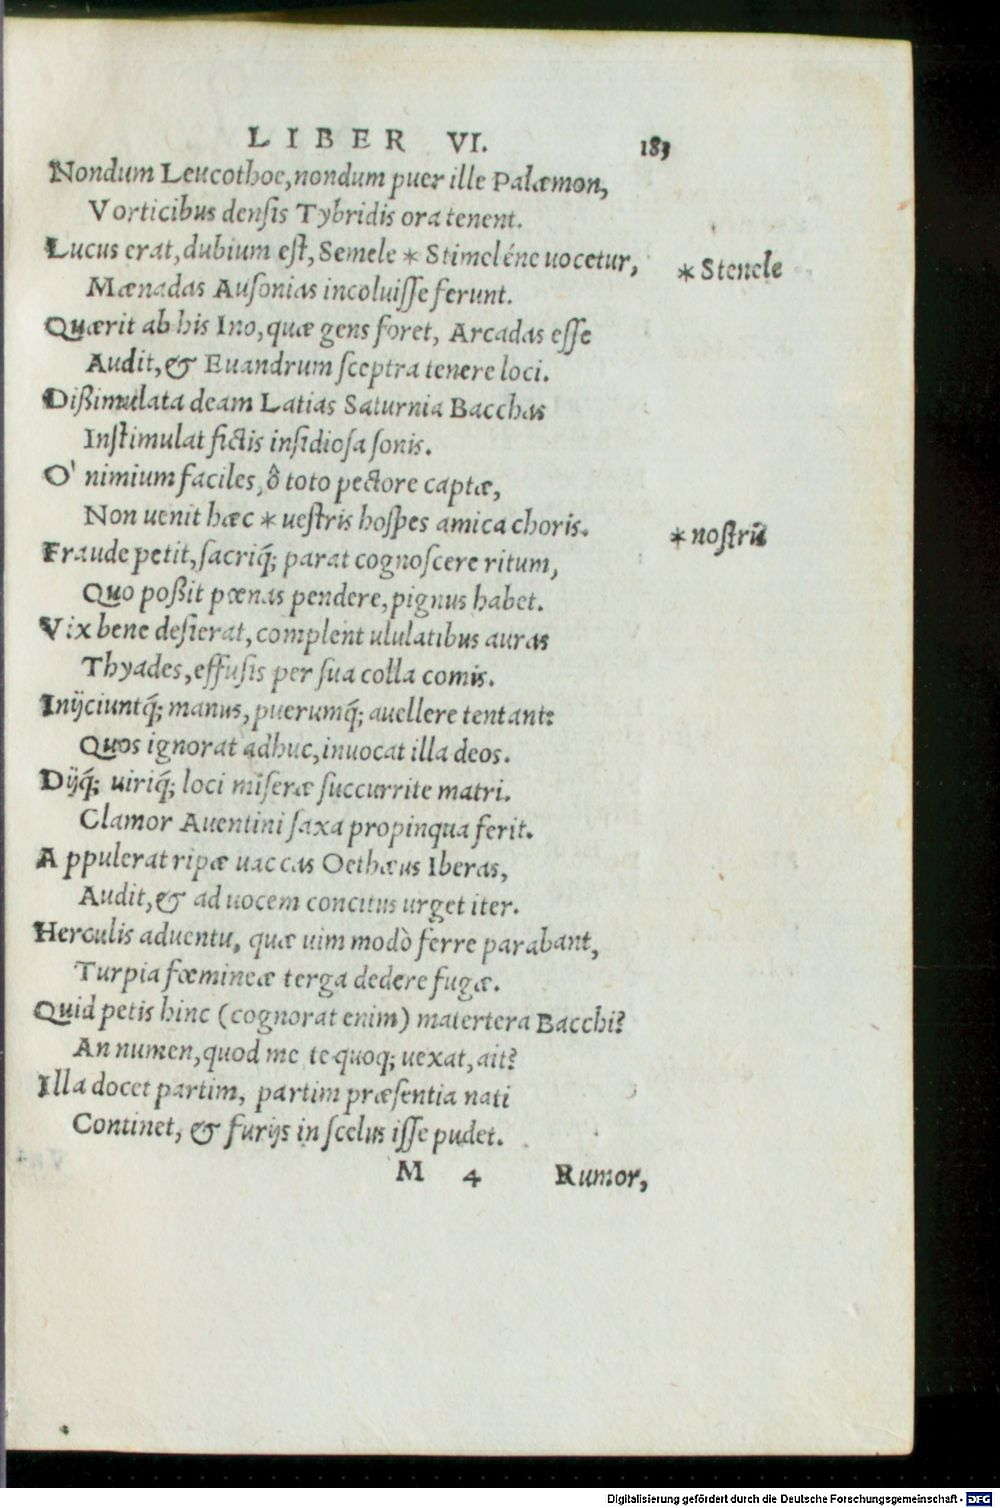 LIBER VI. 183
Nondum Leucothoe, nondum puer ille Palæmon,
Vorticibus densis Tybridis ora tenent.
Lucus erat, dubium est, Semele * Stimeléne uocetur, * Stenele
Mænadas Ausonias incoluisse ferunt.
Quærit ab his Ino, quæ gens foret, Arcadas esse
Audit, & Euandrum sceptra tenere loci.
Dißimulata deam Latias Saturnia Bacchas
Instimulat fictis insidiosa sonis.
O' nimium faciles, ô toto pectore captæ,
Non uenit hæc * uestris hospes amica choris. * nostrū
Fraude petit, sacriq́; parat cognoscere ritum,
Quo poßit pœnas pendere, pignus habet.
Vix bene desierat, complent ululatibus auras
Thyades, effusis per sua colla comis.
Inijciuntq́; manus, puerumq́; auellere tentant:
Quos ignorat adhuc, inuocat illa deos.
Dijq́; uiriq́; loci miseræ succurrite matri.
Clamor Auentini saxa propinqua ferit.
Appulerat ripæ uaccas Oethæus Iberas,
Audit, & ad uocem concitus urget iter.
Herculis aduentu, quæ uim modò ferre parabant,
Turpia fœmineæ terga dedere fugæ.
Quid petis hinc (cognorat enim) matertera Bacchi?
An numen, quod me te quoq; uexat, ait?
Illa docet partim, partim præsentia nati
Continet, & furijs in scelus isse pudet.
M 4 Rumor,
Digitalisierung gefördert durch die Deutsche Forschungsgemeinschaft - DFG